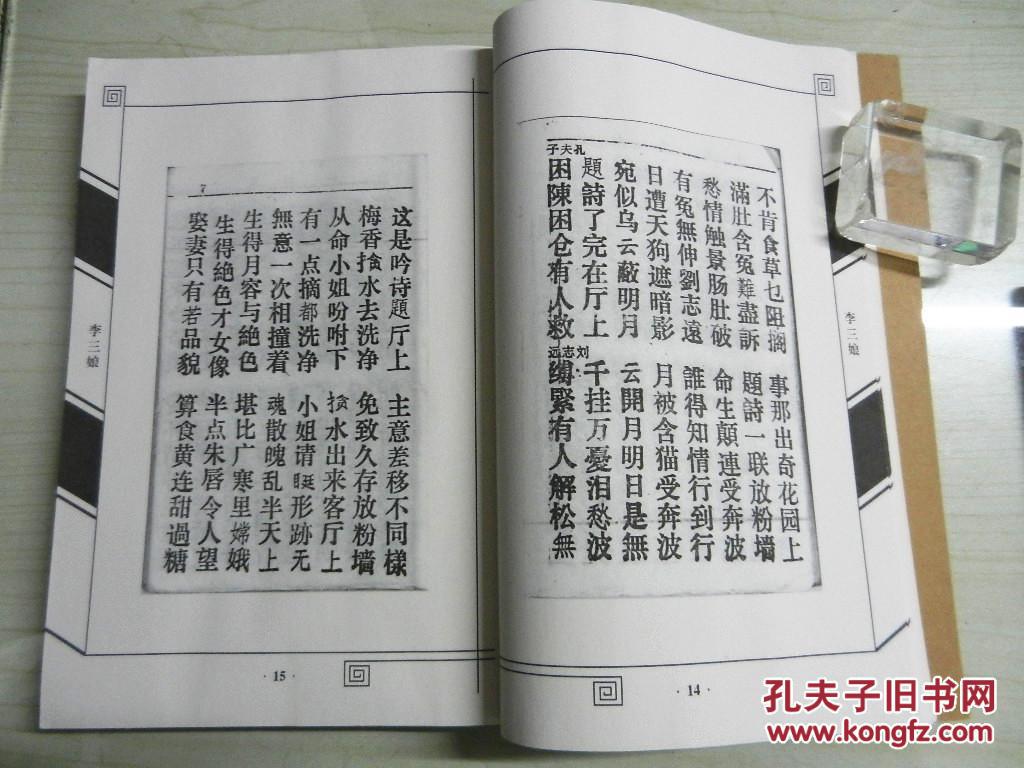 不肯食草乜阻搁 事那出奇花园上
滿肚含冤難盡訴 題詩一联放粉墙
愁情触景肠肚破 命生顛連受奔波
有冤無伸劉志遠 誰得知情行到行
日遭天狗遮暗影 月被含猫受奔波
宛似乌云蔽明月 云開月明日是無
題詩了完在厅上 千挂万憂泪愁波
孔夫子 刘志远
困陳困仓有人救 缚緊有人解松無
李三娘
· 14 ·
7
这是吟诗題厅上 主意差移不同樣
梅香水去洗净 免致久存放粉墙
从命小姐吩咐下 水出来客厅上
有一点摘都洗净 小姐请形跡无
無意一次相撞着 魂散魄乱半天上
生得月容与絶色 堪比广寒里嫦娥
生得絶色才女像 半点朱唇令人望
娶妻只有若品貌 算食黄连甜過糖
李三娘
· 15 ·
孔夫子旧书网
www.kongfz.com